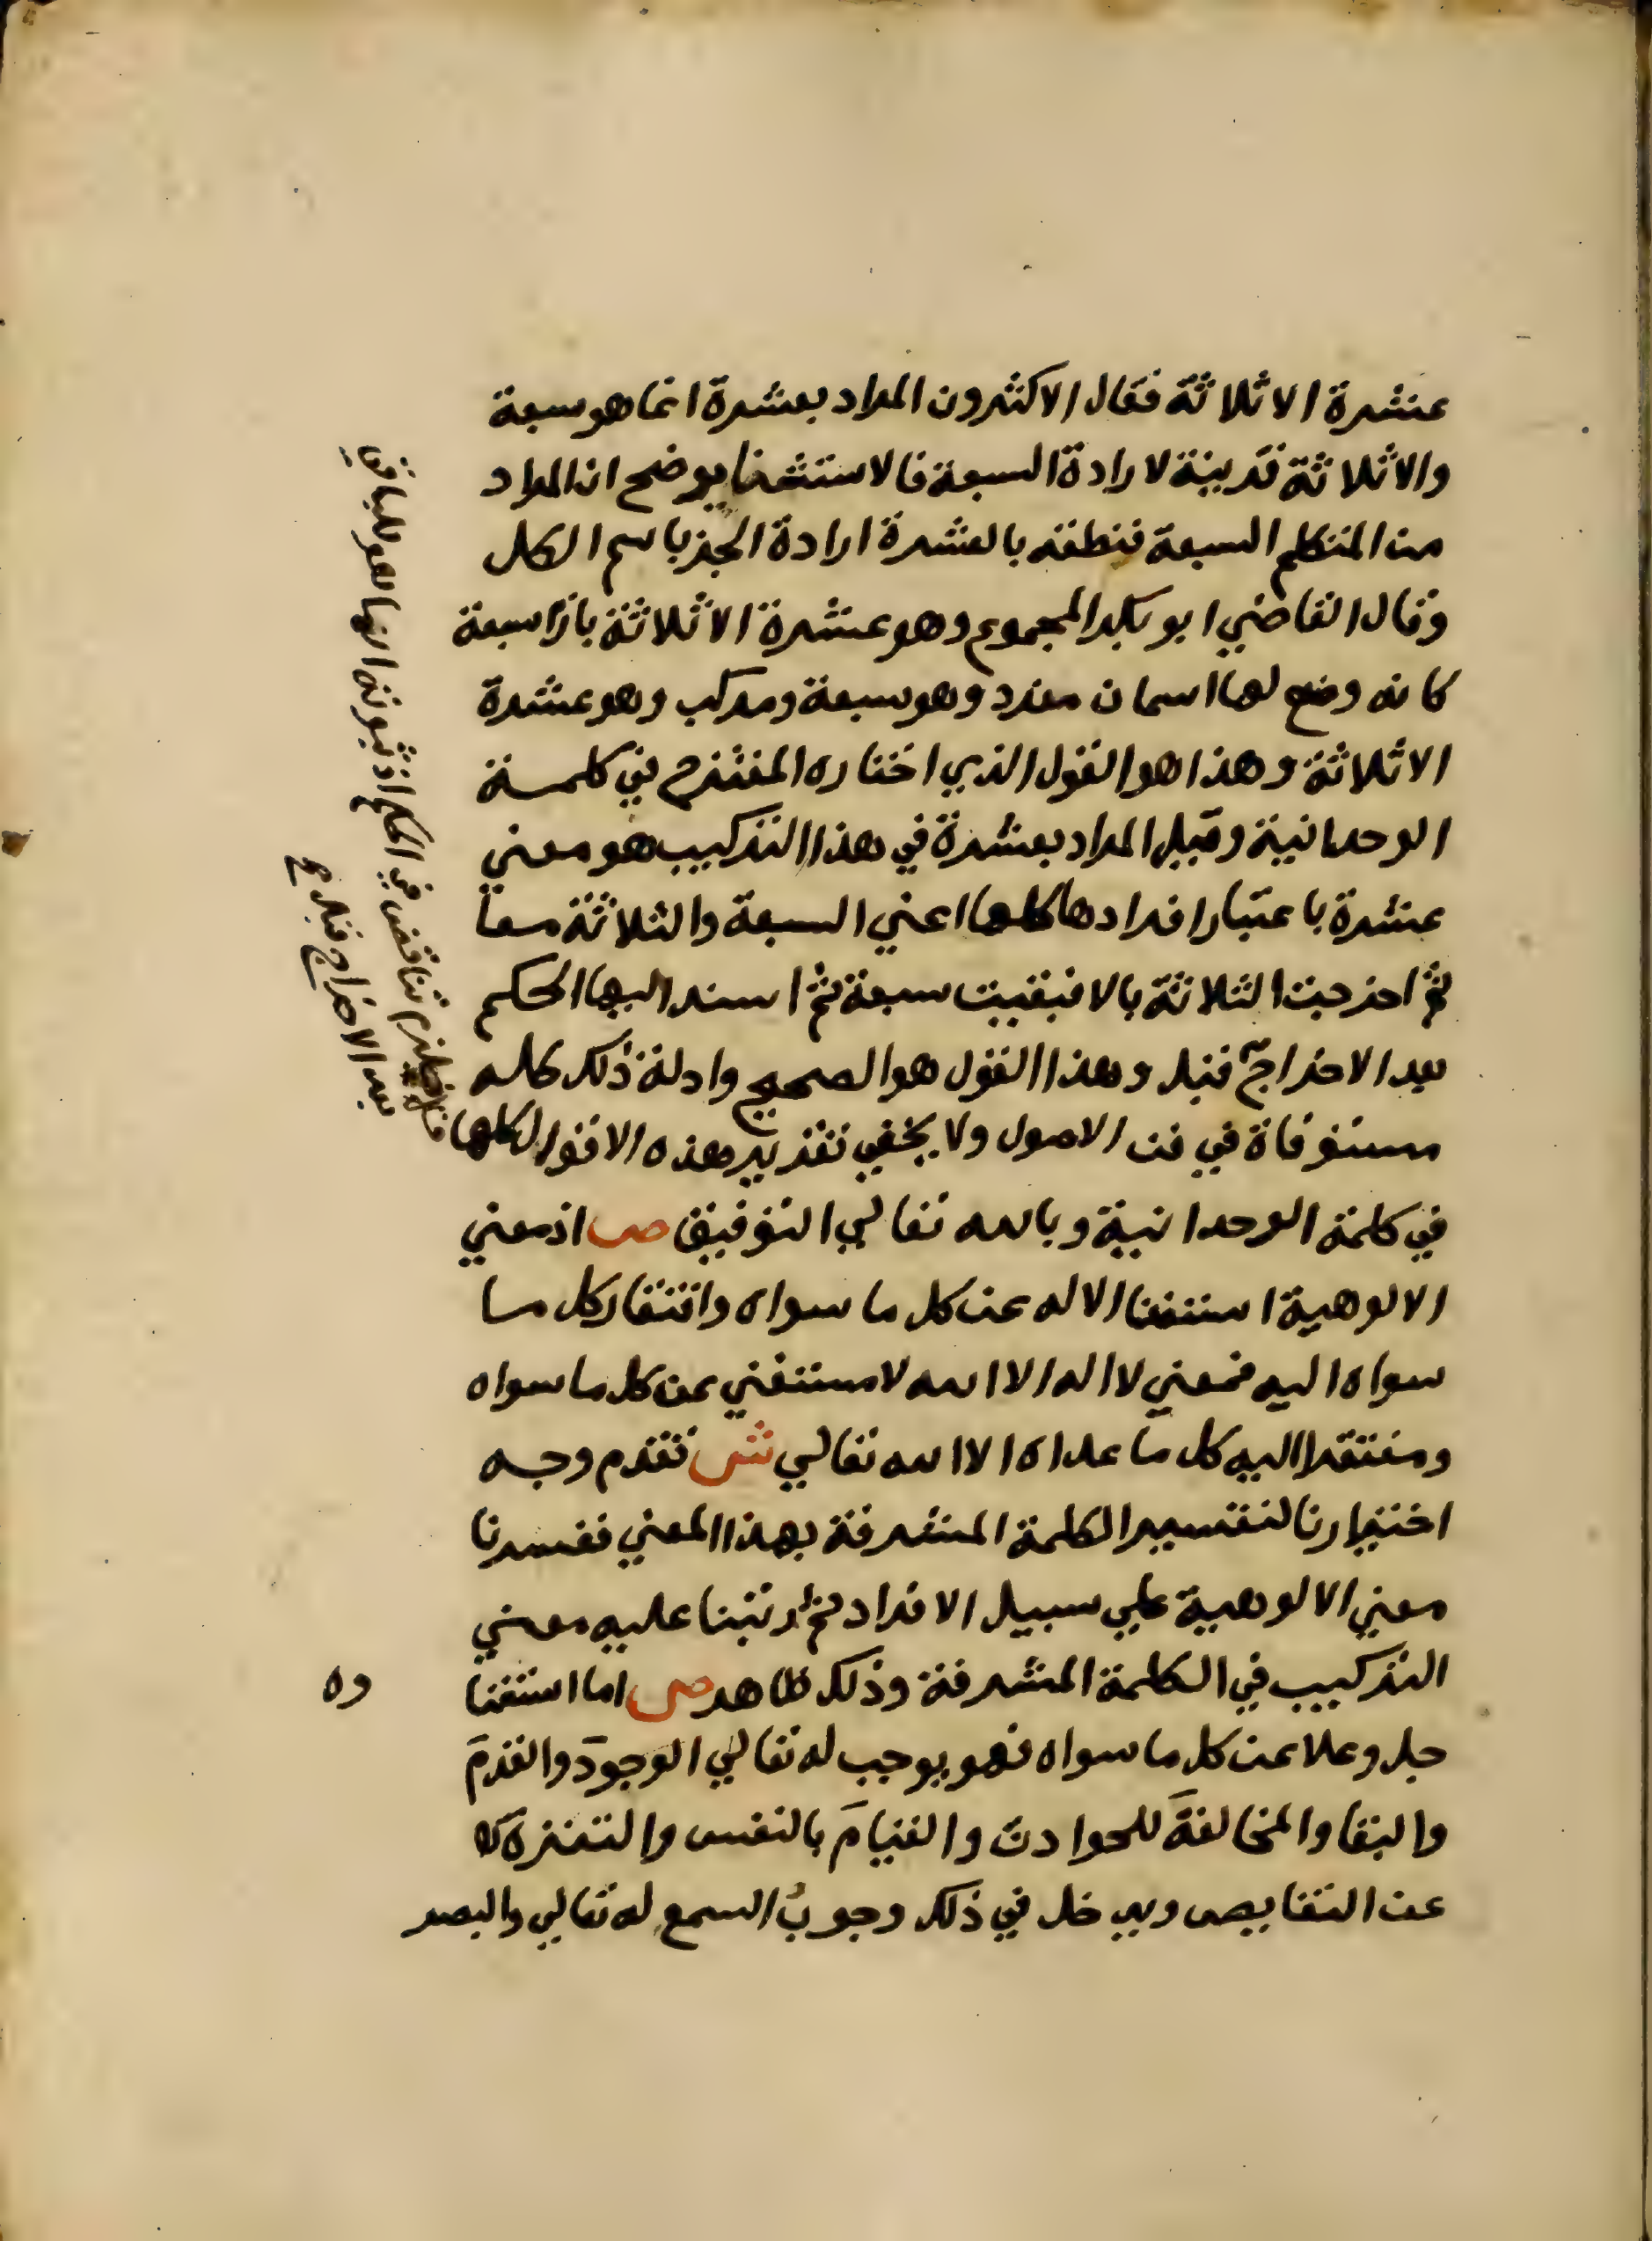 عشرة الا ثلاثة فقال الاكثرون المراد بعشرة انما هو سبعة
والا ثلاثة قرينة لارادة السبعة فالاستثنا يوضح ان المراد
من المتكلم السبعة فنطقه بالعشرة ارادة الجز باسم الكل
وقال القاضي ابو بكر المجموع وهو عشرة الا ثلاثة بازا سبعة
كانه وضع لها اسمان مفرد وهو سبعة ومركب وهو عشرة
الا ثلاثة وهذا هو القول الذي اختاره المقترح في كلمة
الوحدانية وقيل المراد بعشرة في هذا التركيب هو معني
عشرة باعتبار افرادها كلها اعني السبعة والثلاثة معا
ثم اخرجت الثلاثة بالا فبقيت سبعة ثم اسند اليها الحكم
بعد الاخراج قبله وهذا القول هو الصحيح وادلة ذلك كله
مستوفاة في فن الاصول ولا يخفي تقدير هذه الاقوال كلها
في كلمة الوحدانية وبالله تعالي التوفيق ص اذ معني
الالوهية استغنا الاله عن كل ما سواه وافتقار كل ما
سواه اليه فمعني لا اله الا الله لا مستغني عن كل ما سواه
ومفتقرا اليه كل ما عداه الا الله تعالي ش تقدم وجه
اختيارنا لتفسير الكلمة المشرفة بهذا المعني ففسرنا
معني الالوهية علي سبيل الافراد ثم رتبنا عليه معني
التركيب في الكلمة المشرفة وذلك ظاهر ص اما استغنا
جل وعلا عن كل ما سواه فهو يوجب له تعالي الوجودَ والقدمَ
والبقا والمخالفةَ للحوادث والقيامَ بالنفس والتنزهَ
عن النقايص ويدخل في ذلك وجوبُ السمع له تعالي والبصر
فلا يلزم تناقض في الحكم اذ ثبوته انما هو للباقي
بعد الاخراج قبله
وه